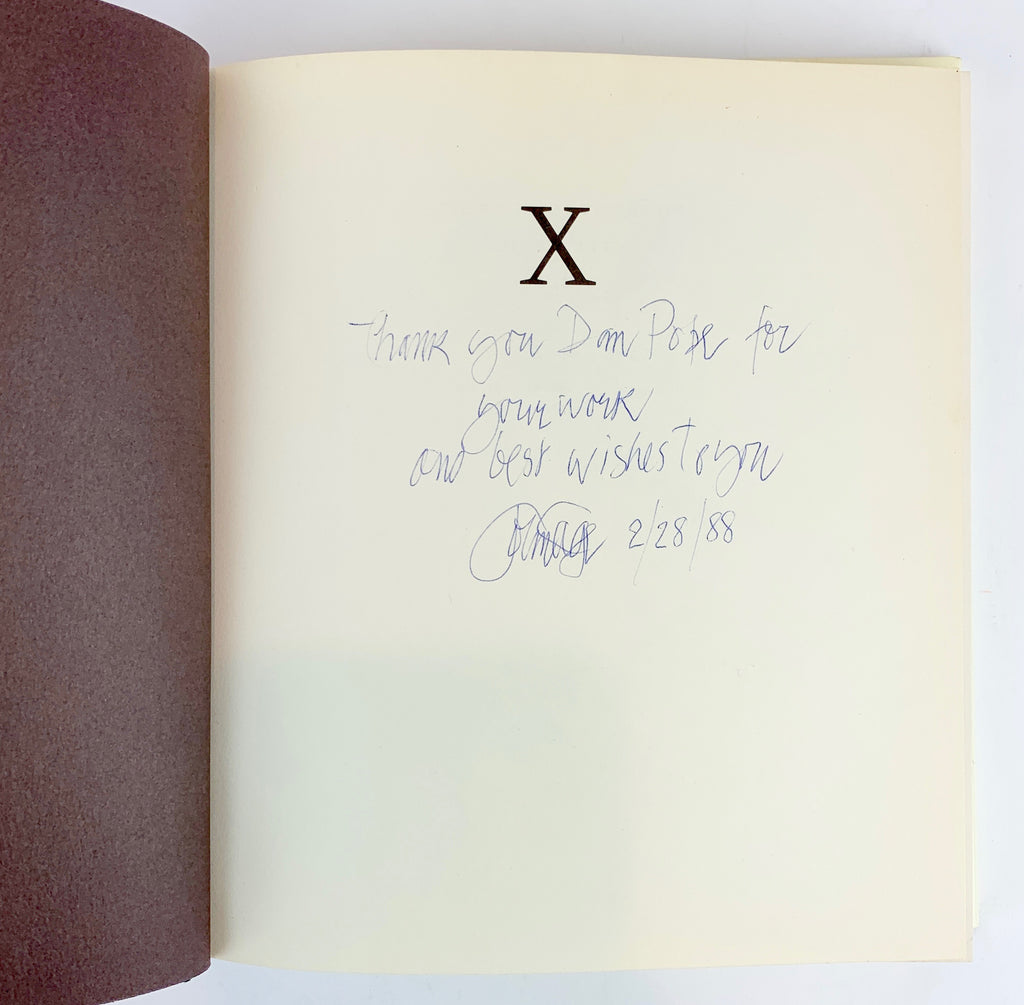 X
Thank you Dan Pope for
your work
and best wishes to you
John Cage 2/28/88